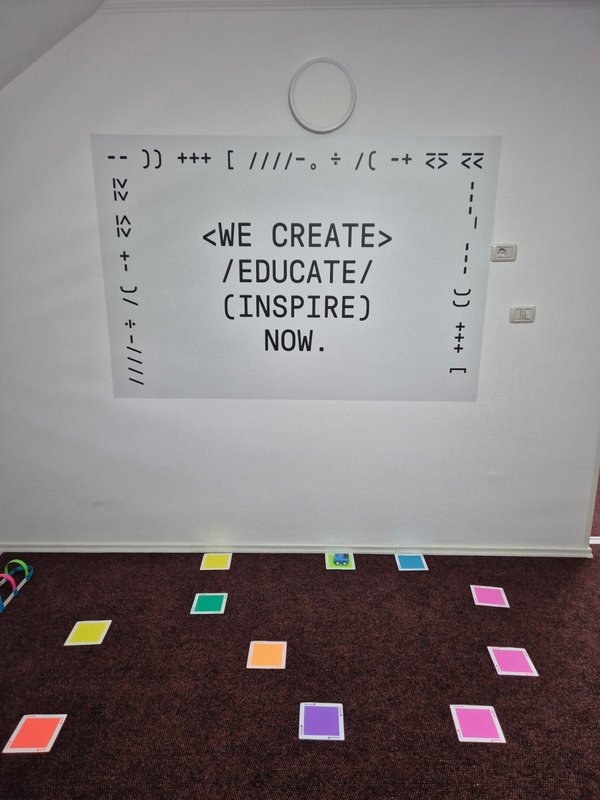 -- )) +++ [ ////-。 ÷ /( -+ <̅>̅ <̅<̅
<WE CREATE>
/EDUCATE/
(INSPIRE)
NOW.